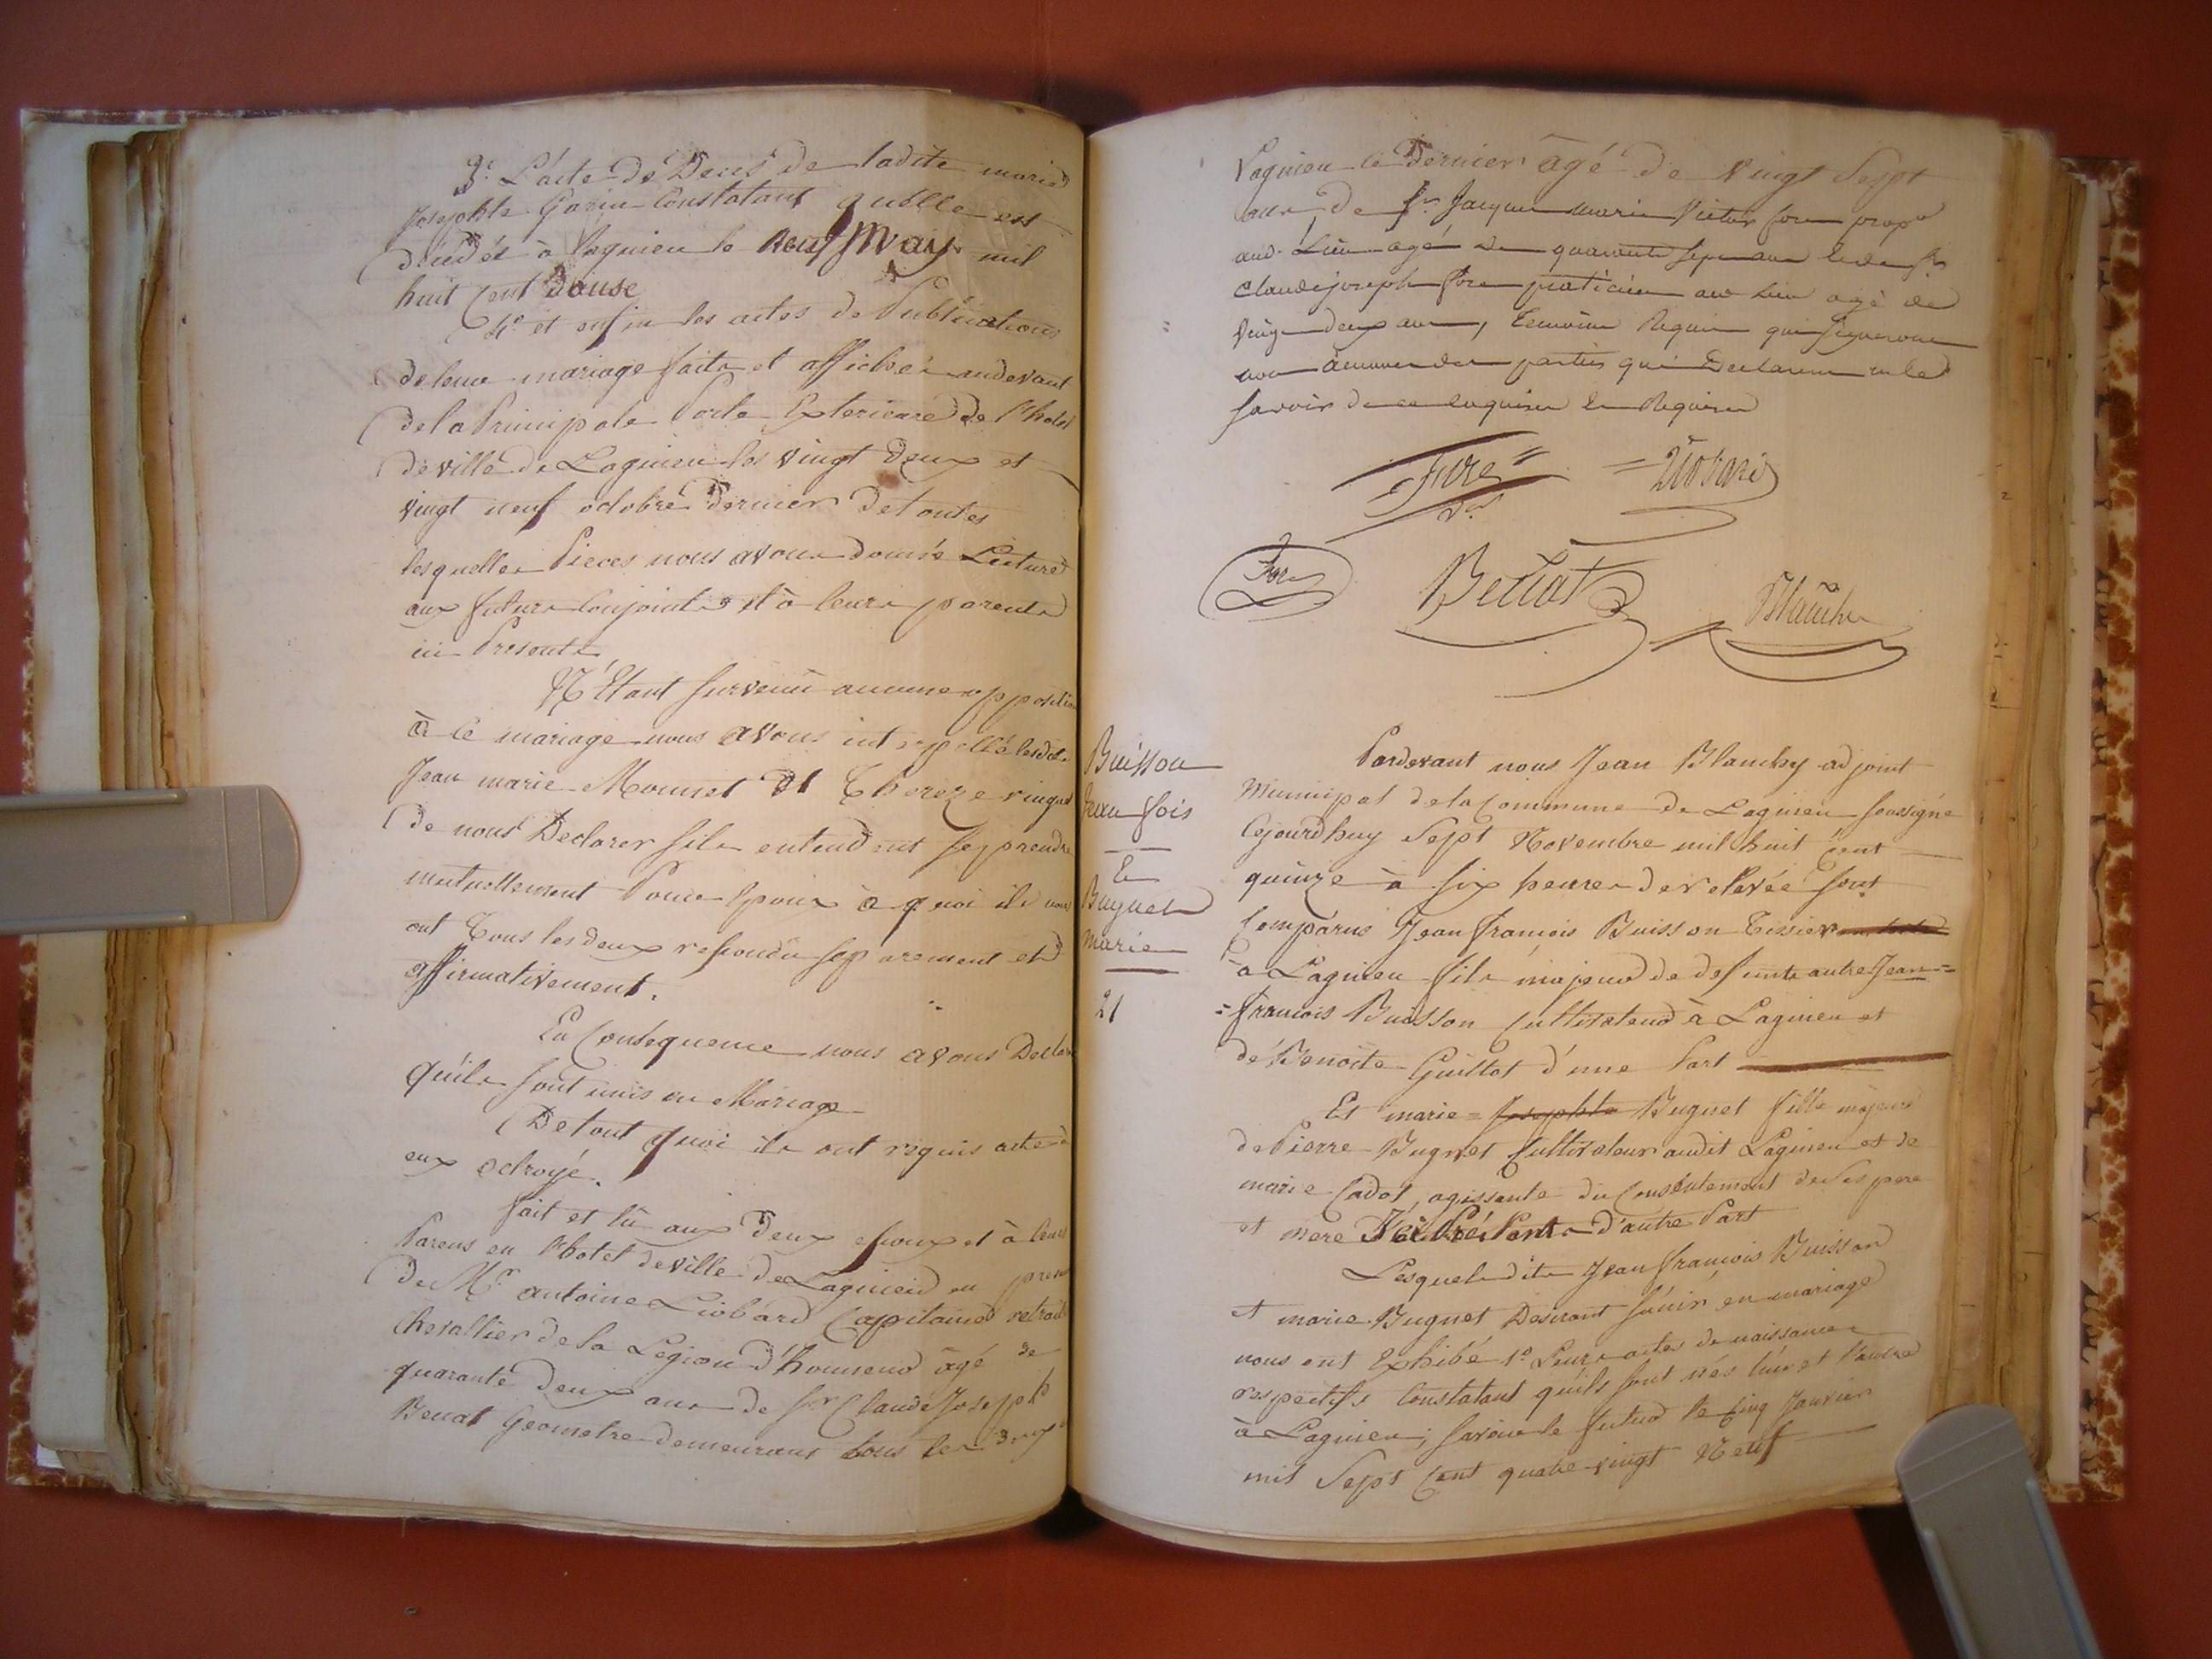 3.° L'acte de Deces de ladite marie
Josephte Garin Constatant qu'elle est
décédée à lagnieu le neuf May mil
huit Cent douse
4.° et enfin les actes de Publications
de leur mariage faits et affichés audevant
de la Principale Porte Exterieure de l'hotel
de ville de Lagnieu les vingt deux et
vingt neuf octobre dernier de toutes
lesquelles Pieces nous avons donné Lecture
aux futurs Conjoints et à leurs parents
ici Presents
N'Etant survenu aucune opposition
à ce mariage nous avons interpellé lesdits
Jean marie Monnet et Thereze
de nous Declarer s'ils entendent se prendre
mutuellement Pour Epoux à quoi ils nous
ont Tous les deux repondu separement et
affirmativement.
En Consequence nous avons Declaré
qu'ils sont unis en Mariage
De tout quoi ils ont requis acte à
eux octroyé.
fait et lu aux deux epoux et à leurs
Parens en l'hotel de ville de Lagnieu en
de Mr antoine Liobard Capitaine retraité
Chevallier de la Legion d'honneur âgé de
quarante deux ans de Sr Claude Joseph
Beccat Geometre demeurant tous les deux
Lagnieu ce dernier âgé de vingt Sept
ans, de Sr. Jacques marie Victor fore prop.re
aud. Lieu agé de quarante sept ans et de Sr
Claude joseph fore praticien aud Lieu agé de
vingt deux ans, Temoins Requis qui signeront
non aucunes des parties qui Declarent ne le
savoir de ce enquises et Requises
Fore = Liobard
Fore Beccat Blanchy
Buisson
Jean fois
Et
Bugnet
Marie
21
Pardevant nous Jean Blanchy adjoint
Municipal de la Commune de Lagnieu soussigné
Cejourdhuy Sept Novembre mil huit Cent
quinze à six heures de relevée sont
Comparus Jean françois Buisson Tissier
à Lagnieu fils majeur de defunt autre Jean=
=françois Buisson Cultivateur à Lagnieu et
de Benoite Guillot d'une Part
Et marie = Josephte Bugnet fille majeure
de Pierre Bugnet Cultivateur audit Lagnieu et de
marie Cadot, agissante du Consentement de ses pere
et mere Ici Présents d'autre Part
Lesquels dits Jean françois Buisson
et marie Bugnet Desirant s'unir en mariage
nous ont Exhibé 1.° Leurs actes de naissances
respectifs Constatant qu'ils sont nés l'un et l'autre
à Lagnieu; savoir le futur le Cinq Janvier
mil Sept Cent quatre-vingt Neuf